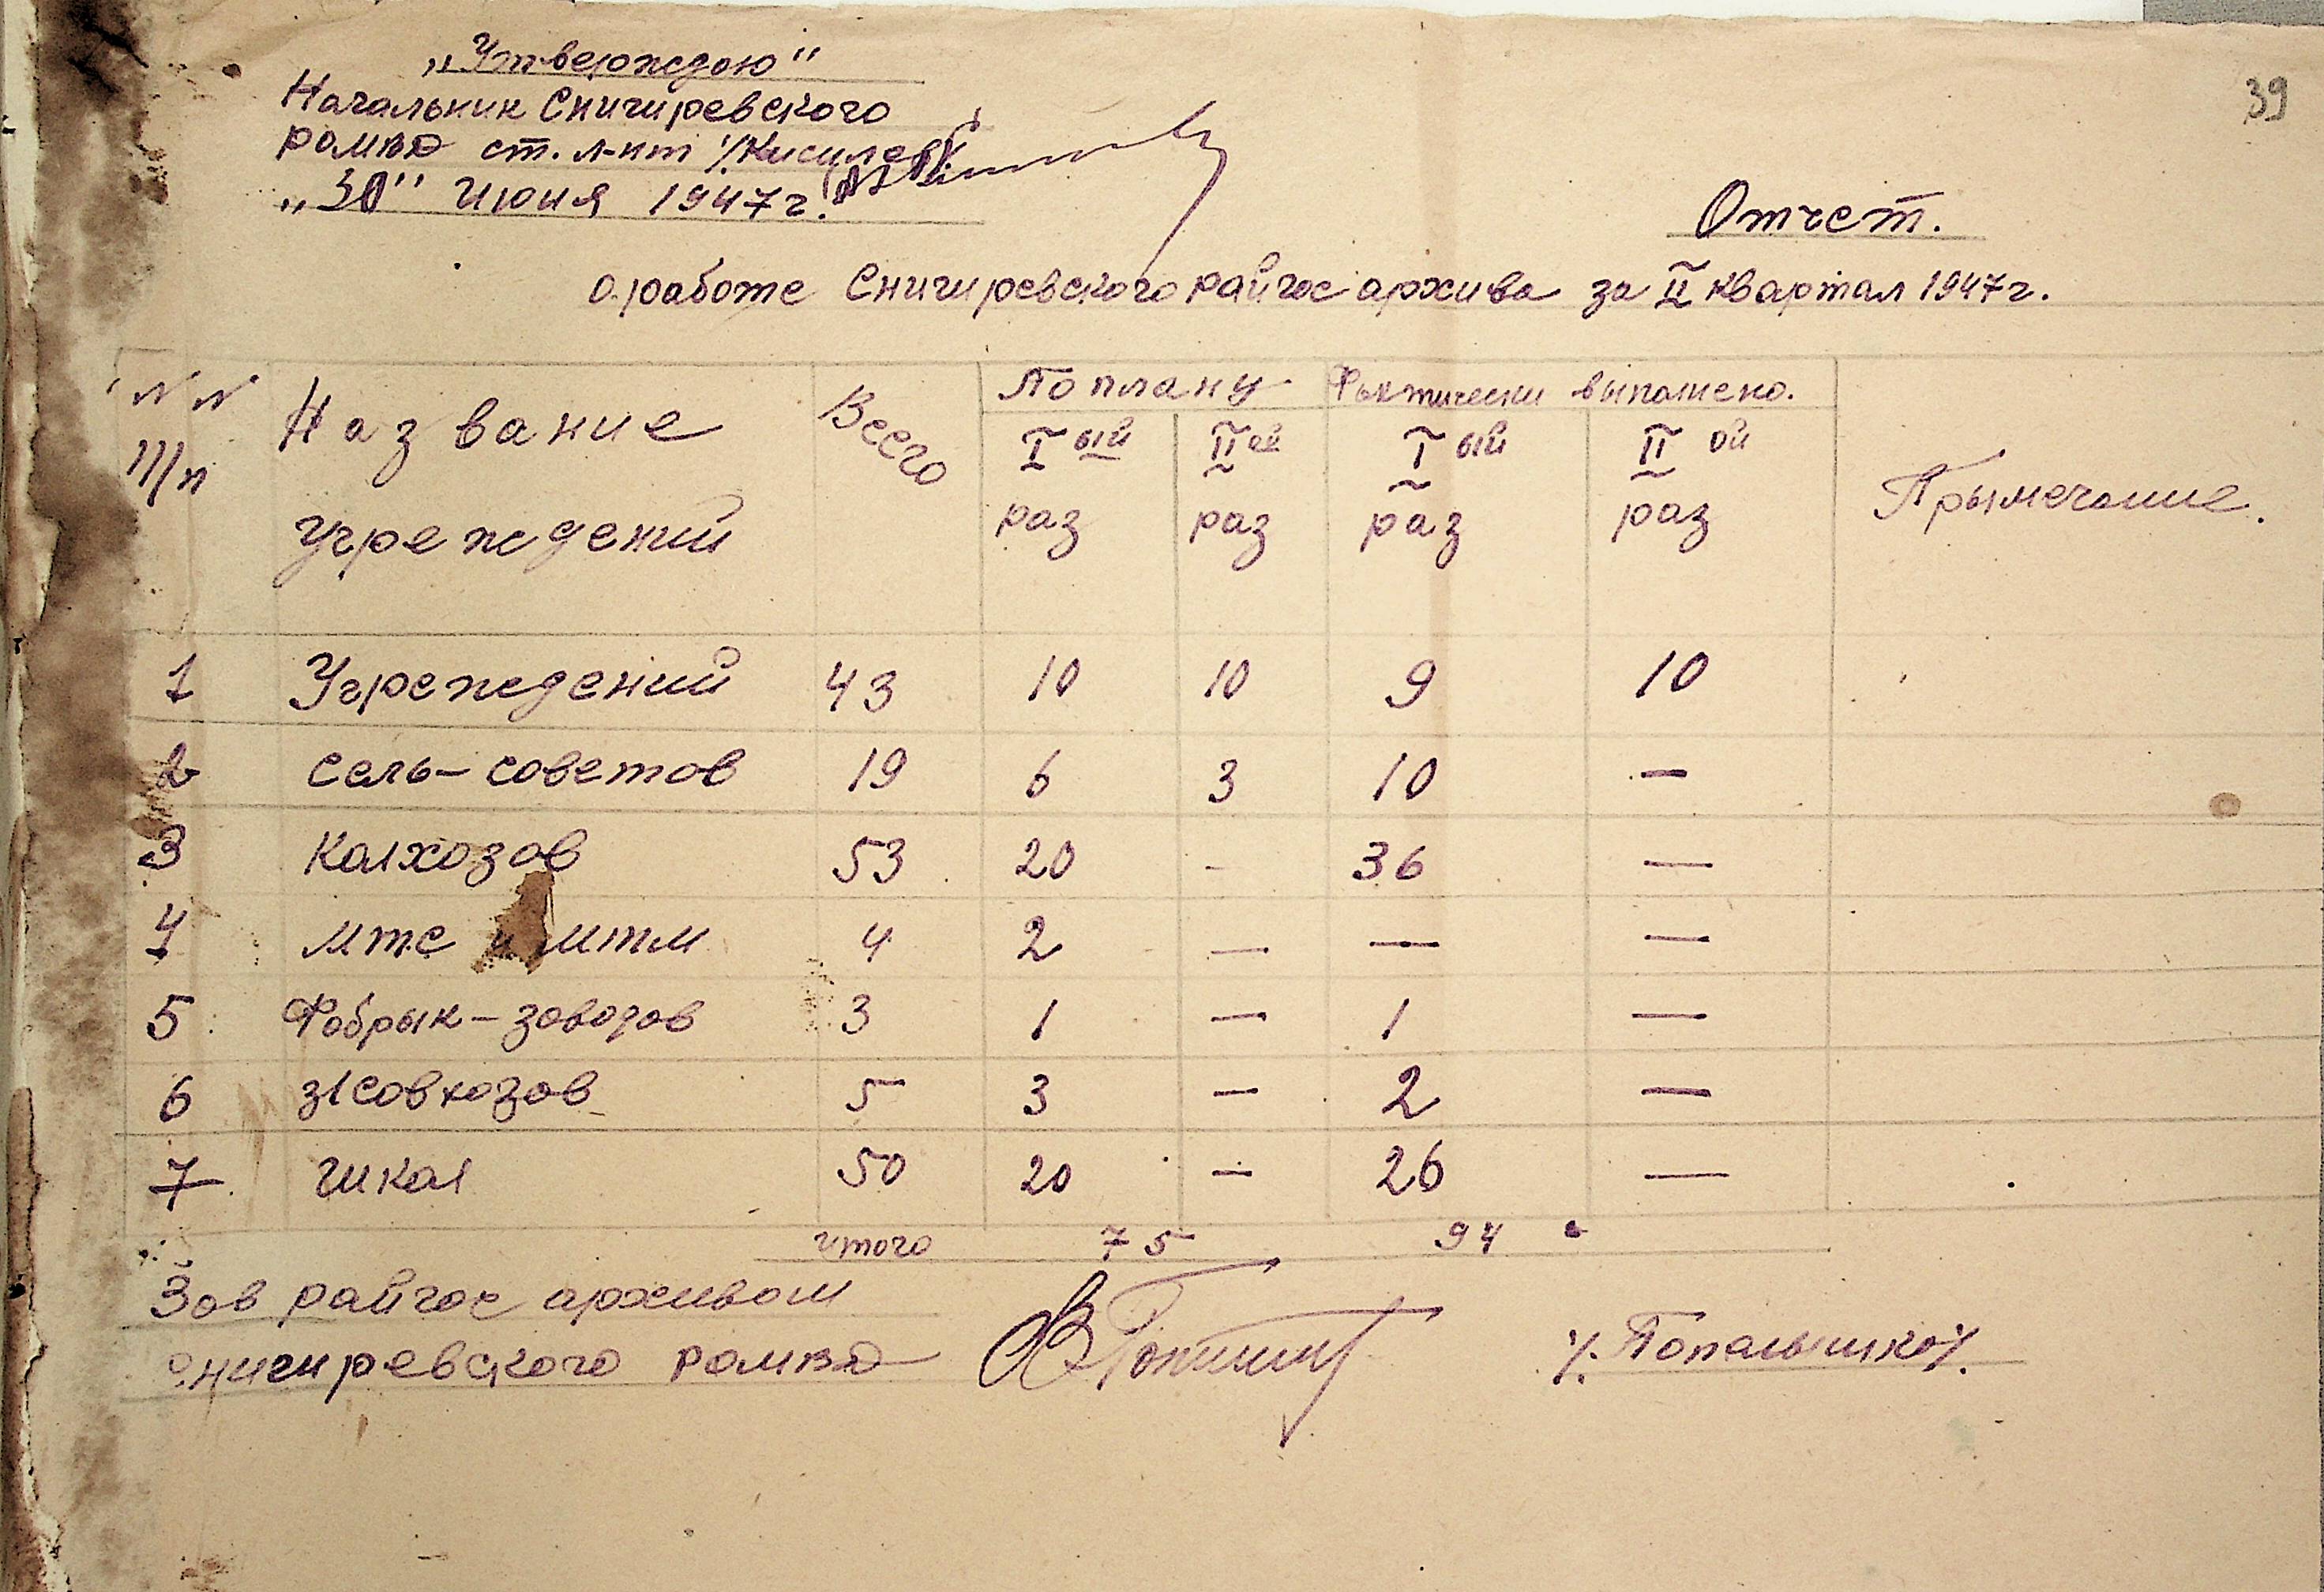 „Утверждаю"
39
Начальник Снигиревского
РОМВД ст. л-нт /Кисилев/
„30" Июня 1947 г.
Отчет.
о работе Снигиревского райгосархива за II квартал 1947 г.
NN п/п Название учреждений Всего По плану Фактически выполнено. Прымечание.
Iый раз IIой раз Iый раз IIой раз
1 Учреждений 43 10 10 9 10
2 Сель-советов 19 6 3 10 —
3 Колхозов 53 20 - 36 —
4 МТС и МТМ 4 2 — — —
5 Фабрык-заводов 3 1 — 1 —
6 з/совхозов 5 3 — 2 —
7 Школ 50 20 — 26 —
итого 75 94
Зав райгос архивом
Снигиревского РОМВД /.Попальшко/.